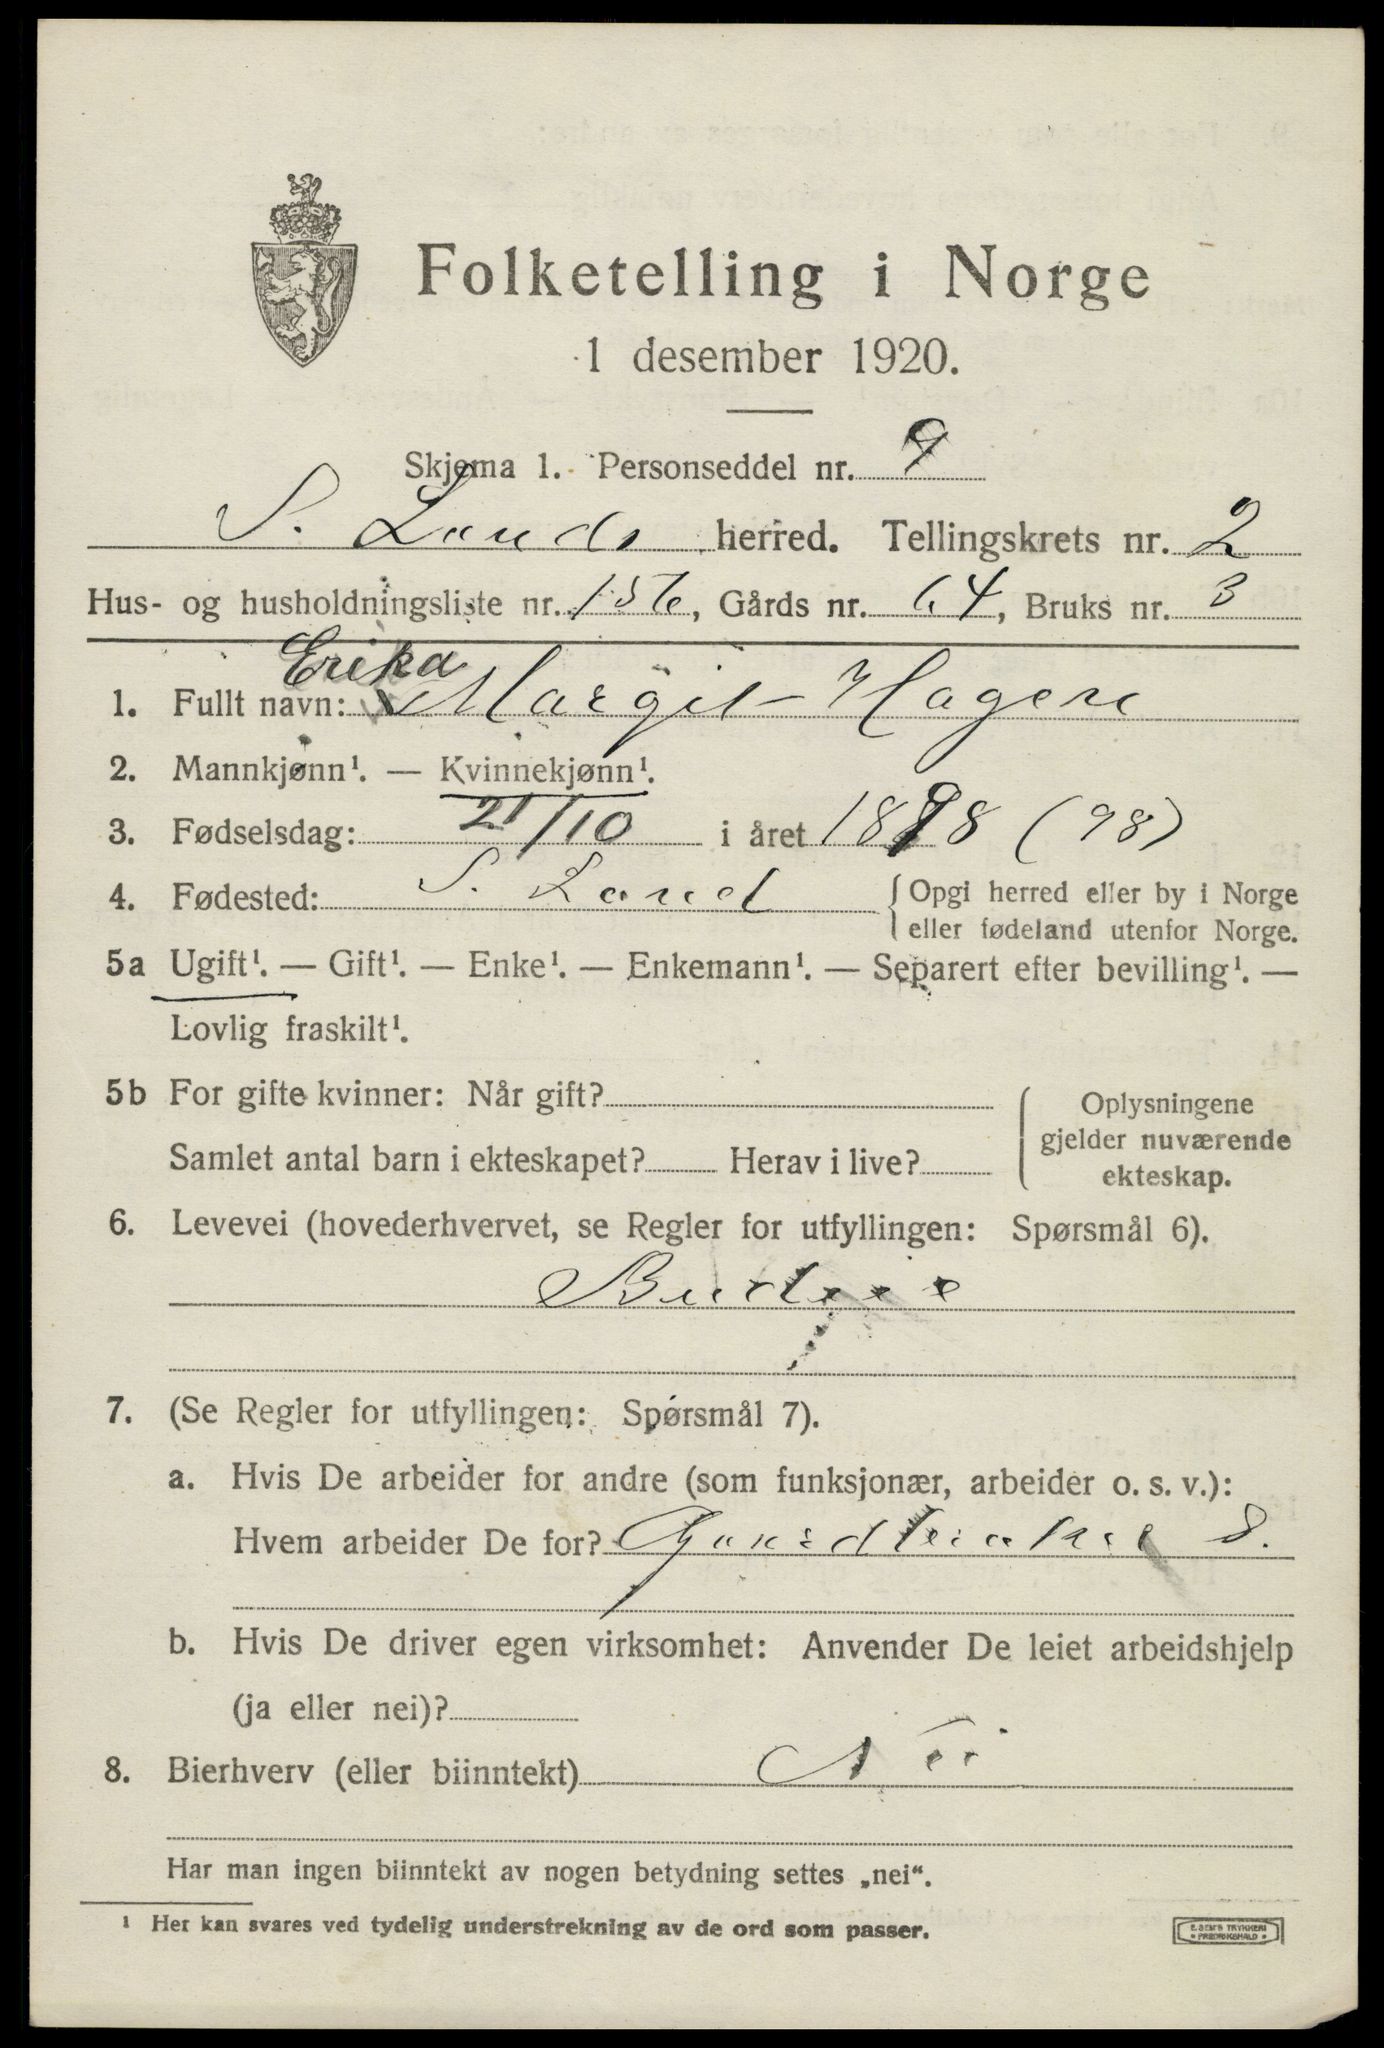 Folketelling i Norge
1 desember 1920.
Skjema 1. Personseddel nr. 9
S. Lands herred. Tellingskrets nr. 2
Hus- og husholdningsliste nr. 156, Gårds nr. 64, Bruks nr. 3
Erika
1. Fullt navn: Margit Hagen
2. Mannkjønn¹. — Kvinnekjønn¹.
3. Fødselsdag: 21/10 i året 1898 (98)
4. Fødested: S. Land { Opgi herred eller by i Norge
eller fødeland utenfor Norge.
5a Ugift¹. — Gift¹. — Enke¹. — Enkemann¹. — Separert efter bevilling¹. —
Lovlig fraskilt¹.
5b For gifte kvinner: Når gift?
Samlet antal barn i ekteskapet? Herav i live?
Oplysningene
gjelder nuværende
ekteskap.
6. Levevei (hovederhvervet, se Regler for utfyllingen: Spørsmål 6).
Budeie
7. (Se Regler for utfyllingen: Spørsmål 7).
a. Hvis De arbeider for andre (som funksjonær, arbeider o. s. v.):
Hvem arbeider De for?
b. Hvis De driver egen virksomhet: Anvender De leiet arbeidshjelp
(ja eller nei)?
8. Bierhverv (eller biinntekt) Nei
Har man ingen biinntekt av nogen betydning settes „nei“.
¹ Her kan svares ved tydelig understrekning av de ord som passer.
E. SEM'S TRYKKERI
• FREDRIKSHALD •